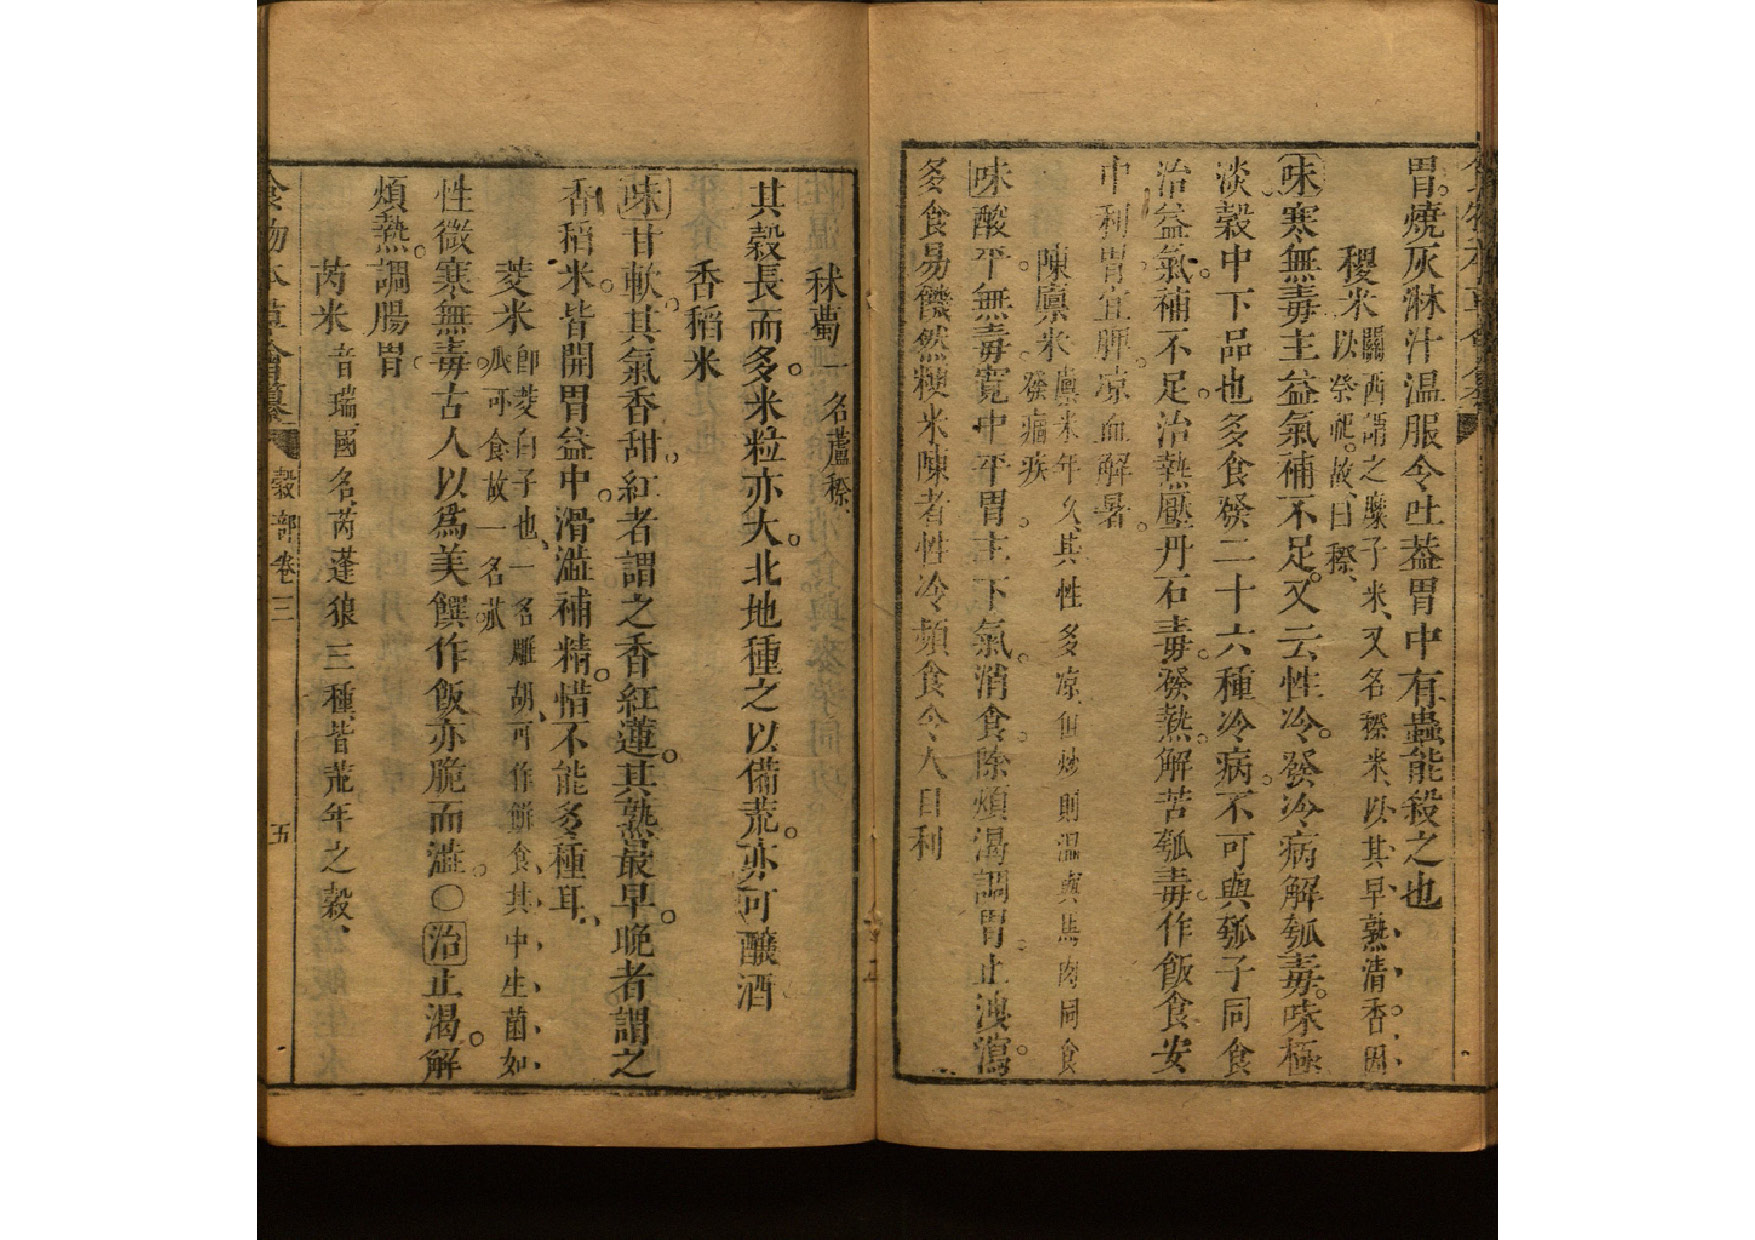 胃燒灰淋汁温服令吐葢胃中有蟲能殺之也
稷米關西謂之䵚子米又名穄米以其早熟清香因
以祭祀故曰穄
味寒無毒主益氣補不足又云性冷發冷病解瓠毒味極
淡榖中下品也多食發二十六種冷病不可與瓠子同食
治益氣補不足治熱壓丹石毒發熱解苦瓠毒作飯食安
中利胃宜脾凉血解暑
陳廪米廪米年久其性多凉但炒則温與馬肉同食
發痼疾
味酸平無毒寛中平胃主下氣消食除煩渴調胃止洩瀉
多食易饑然粳米陳者性冷頻食令人自利
秫薥一名蘆穄
其榖長而多米粒亦大北地種之以備荒亦可釀酒
香稻米
味甘軟其氣香甜紅者謂之香紅蓮其熟最早晚者謂之
香稻米皆開胃益中滑澁補精惜不能多種耳
菱米卽菱白子也一名雕胡可作餅食其中生菌如
瓜可食故一名苽
性微寒無毒古人以爲美饌作飯亦脆而澁〇治止渴解
煩熱調腸胃
芮米音瑞國名芮蓬狼三種皆荒年之榖
食物本草會纂 榖部卷二 五